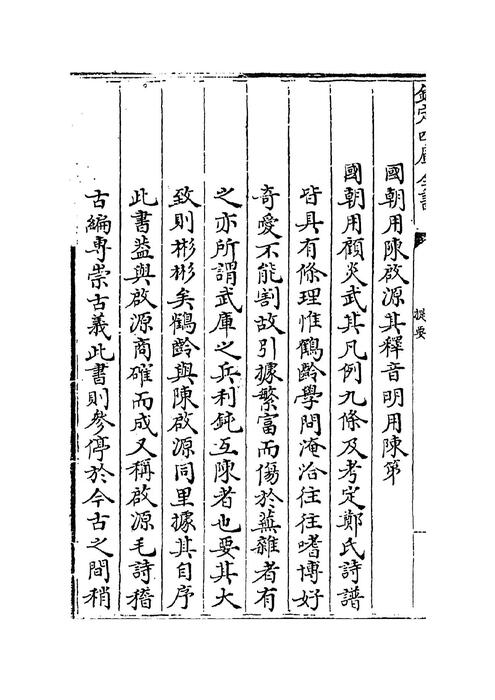 欽定四庫全書
提要
國朝用陳啟源其釋音明用陳第
國朝用顧炎武其凡例九條及考定鄭氏詩譜
皆具有條理惟鶴齡學問淹洽往往嗜博好
奇愛不能割故引據繁富而傷於蕪雜者有
之亦所謂武庫之兵利鈍互陳者也要其大
致則彬彬矣鶴齡與陳啟源同里據其自序
此書益與啟源商確而成又稱啟源毛詩稽
古編專崇古義此書則參停於今古之間稍